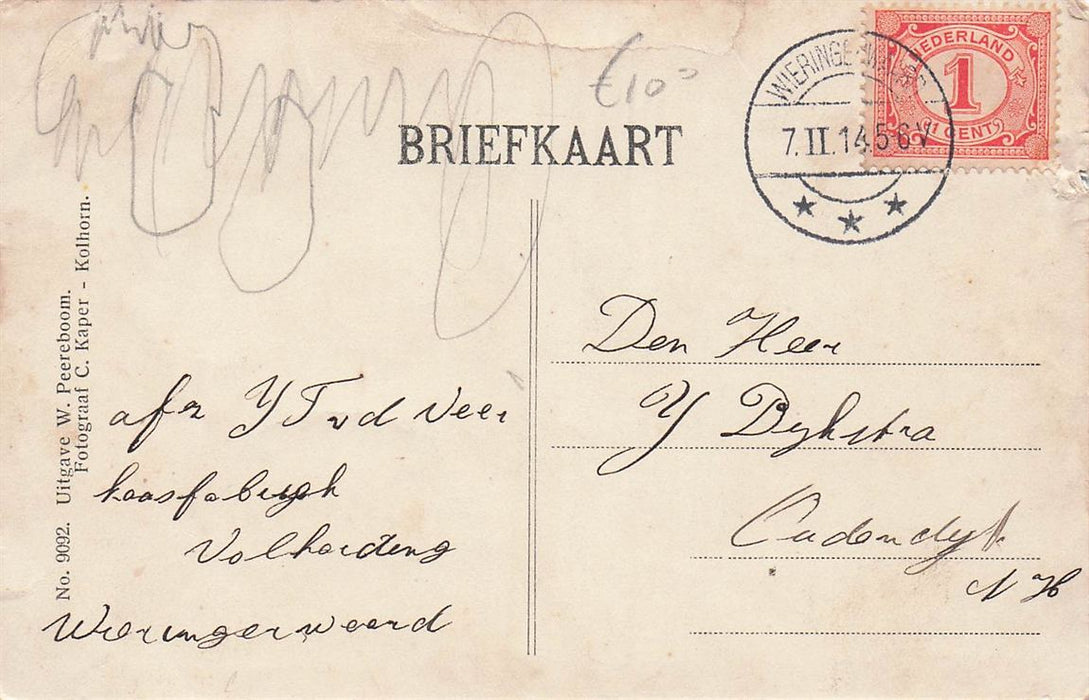 €10
BRIEFKAART
NEDERLAND
1
CENT
7.II.14.5-6V
No. 9092. Uitgave W. Peereboom.
Fotograaf C. Kaper - Kolhorn.
Den Heer
Y Dykstra
Oudendyk
N H
afz Y T v d Veer
kaasfabriek
Volharding
Wieringerwaard